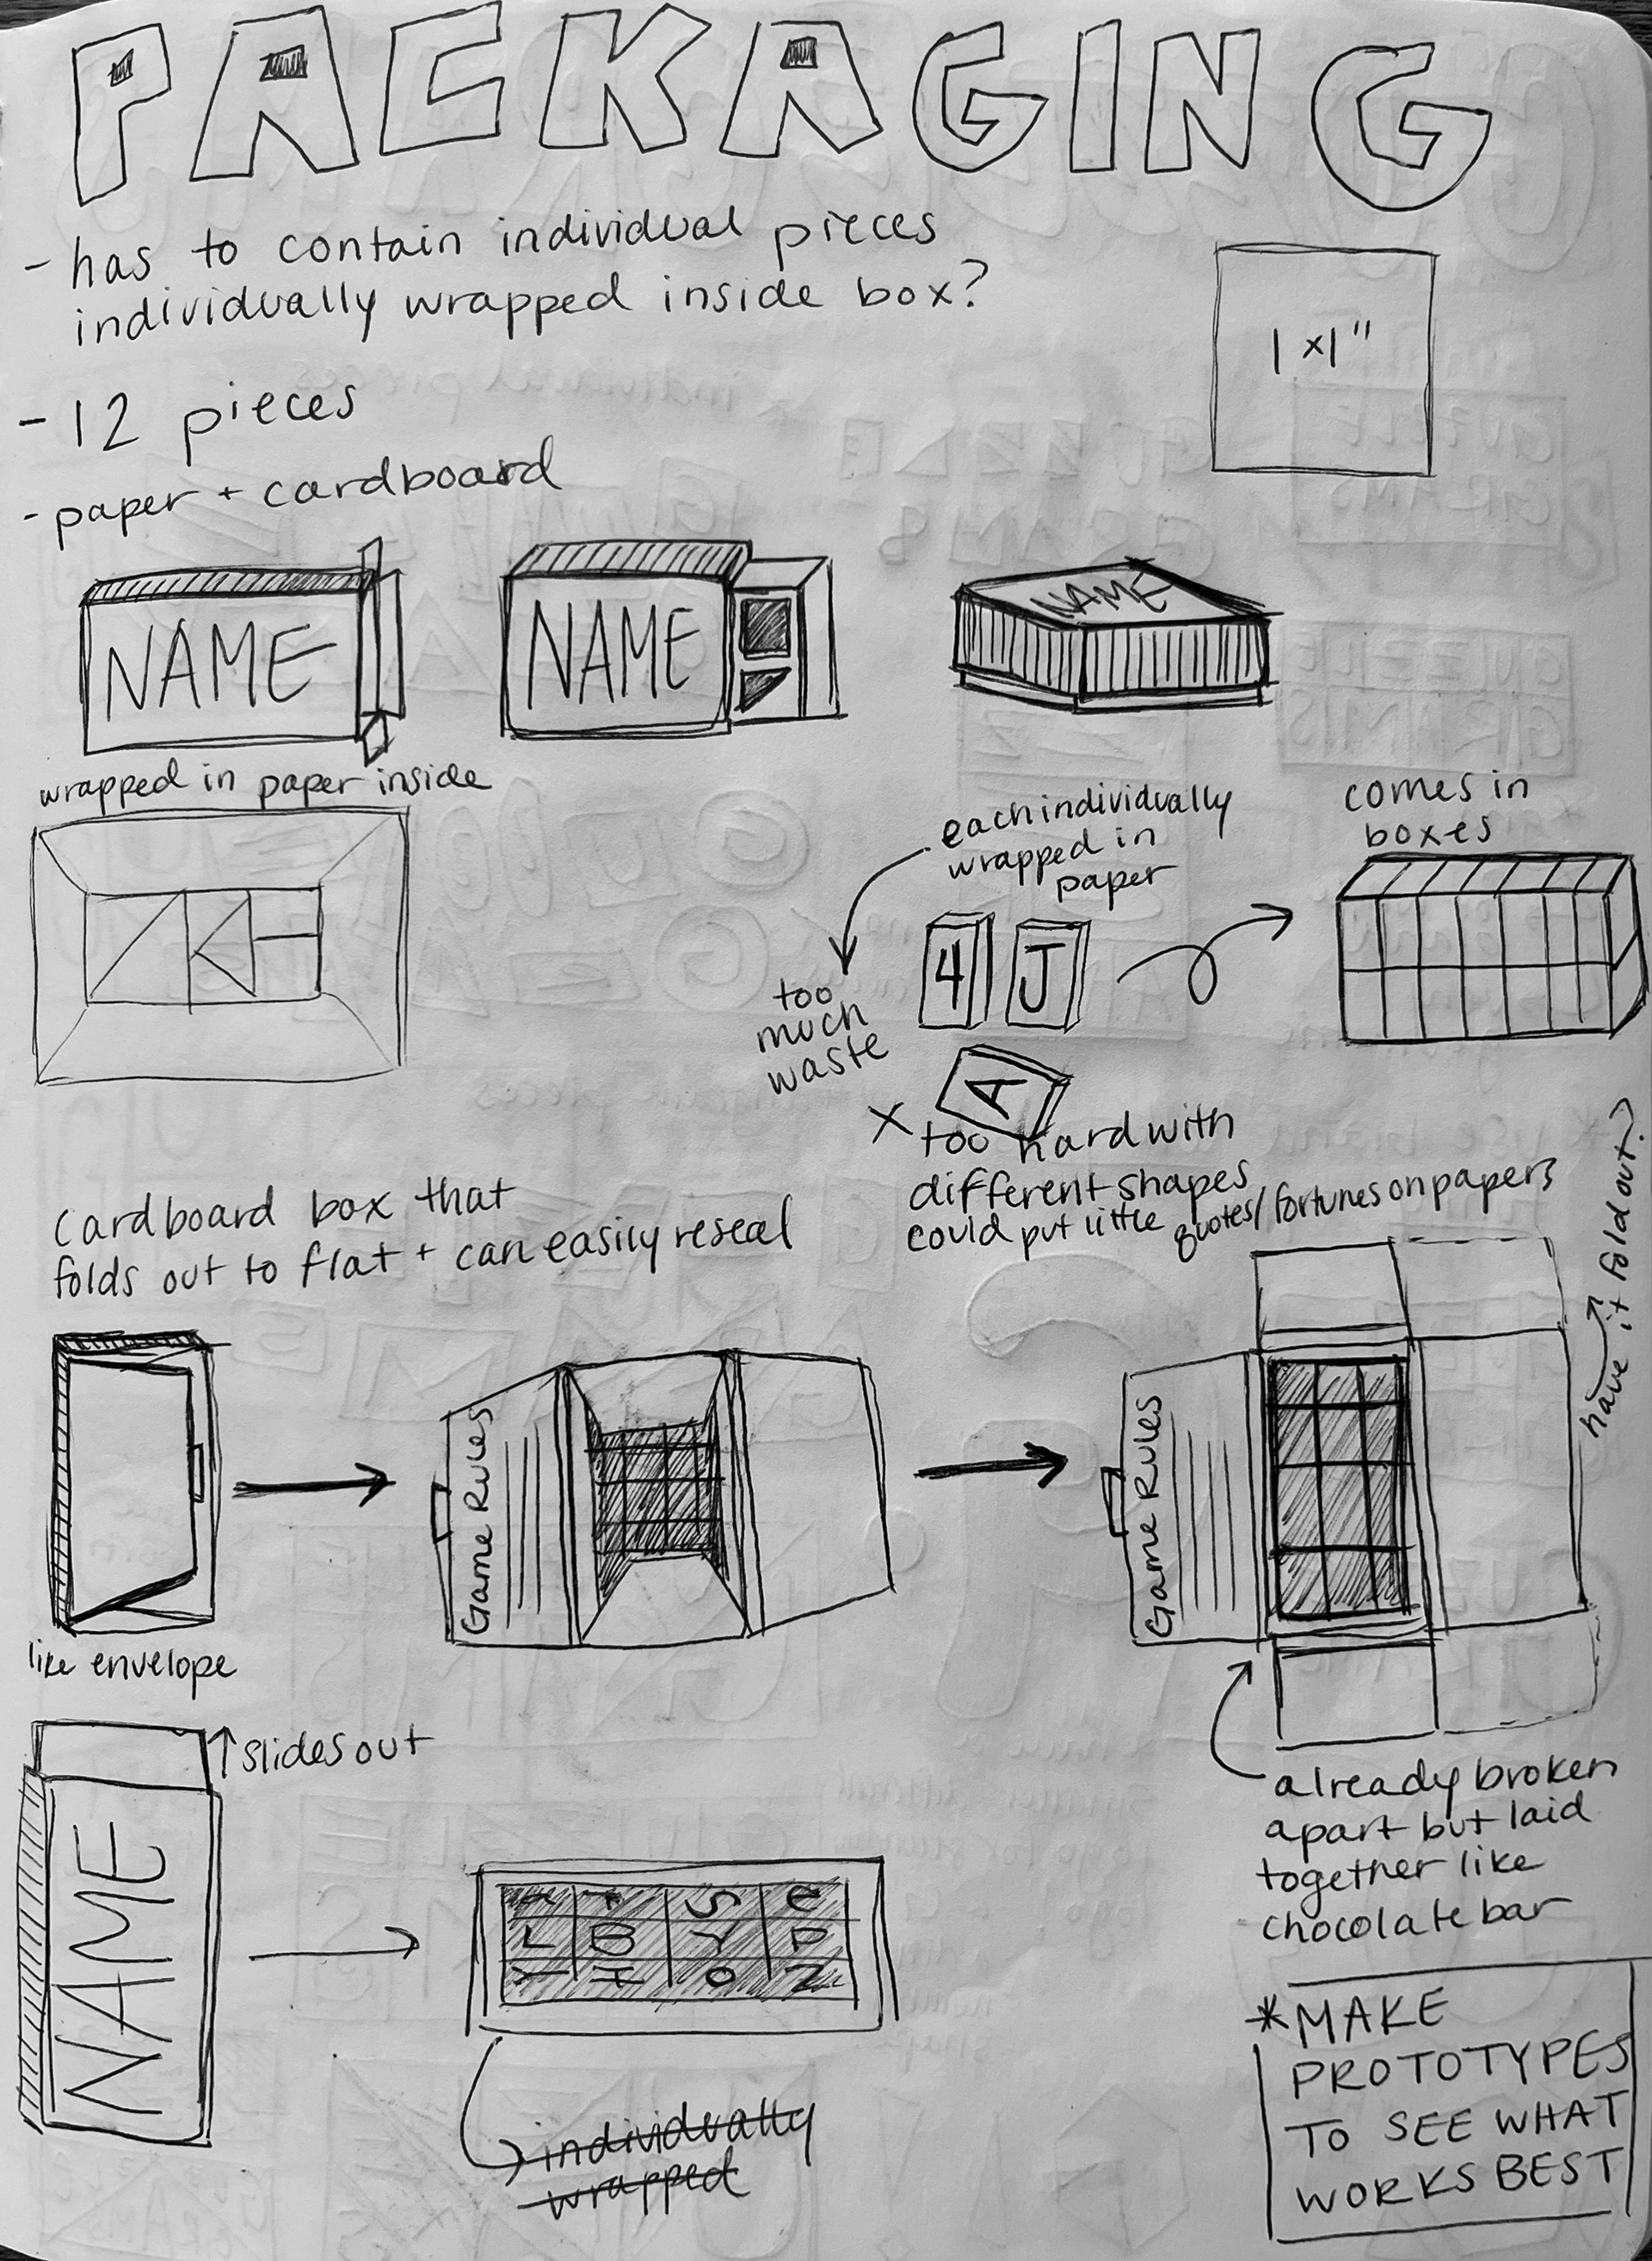 PACKAGING
- has to contain individual pieces
individually wrapped inside box?
1x1"
- 12 pieces
- paper + cardboard
NAME
NAME
NAME
wrapped in paper inside
each individually
wrapped in
paper
comes in
boxes
4 J
too
much
waste
A
x too hard with
different shapes
could put little quotes/fortunes on papers
have it fold out?
cardboard box that
folds out to flat + can easily reseal
Game Rules
Game Rules
like envelope
↑ slides out
already broken
apart but laid
together like
chocolate bar
NAME
S e
L B Y P
Y H O N
individually
wrapped
* MAKE
PROTOTYPES
TO SEE WHAT
WORKS BEST